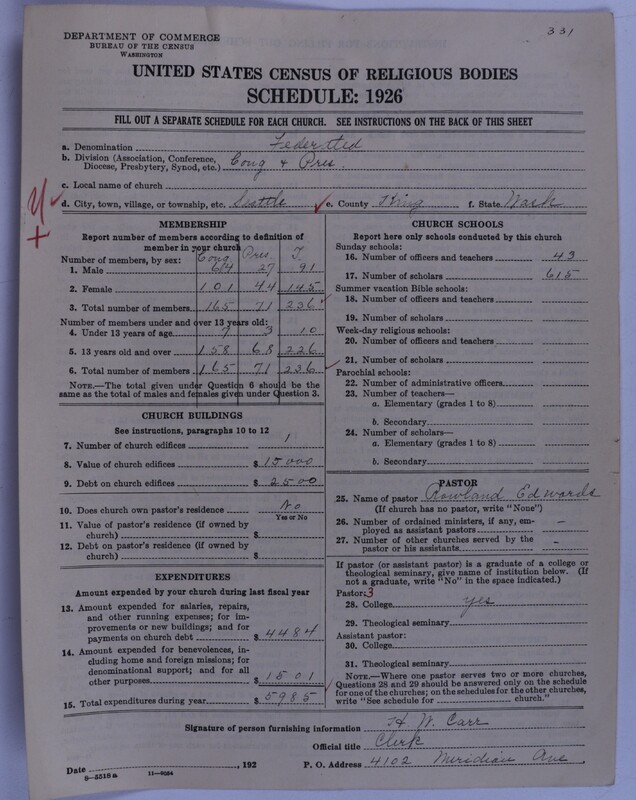 331
DEPARTMENT OF COMMERCE
BUREAU OF THE CENSUS
WASHINGTON
UNITED STATES CENSUS OF RELIGIOUS BODIES
SCHEDULE: 1926
FILL OUT A SEPARATE SCHEDULE FOR EACH CHURCH. SEE INSTRUCTIONS ON THE BACK OF THIS SHEET
a. Denomination Federated
b. Division (Association, Conference,
Diocese, Presbytery, Synod, etc.) Cong + Pres.
c. Local name of church
d. City, town, village, or township, etc. Seattle e. County King f. State Wash
MEMBERSHIP
Report number of members according to definition of
member in your church
Number of members, by sex: Cong Pres. T.
1. Male 64 27 91
2. Female 101 44 145
3. Total number of members 165 71 236
Number of members under and over 13 years old:
4. Under 13 years of age 7 3 10
5. 13 years old and over 158 68 226
6. Total number of members 165 71 236
NOTE.—The total given under Question 6 should be
the same as the total of males and females given under Question 3.
CHURCH BUILDINGS
See instructions, paragraphs 10 to 12
7. Number of church edifices 1
8. Value of church edifices $ 15000
9. Debt on church edifices $ 2500
10. Does church own pastor's residence No
Yes or No
11. Value of pastor's residence (if owned by
church) $
12. Debt on pastor's residence (if owned by
church) $
EXPENDITURES
Amount expended by your church during last fiscal year
13. Amount expended for salaries, repairs,
and other running expenses; for im-
provements or new buildings; and for
payments on church debt $ 4484
14. Amount expended for benevolences, in-
cluding home and foreign missions; for
denominational support; and for all
other purposes $ 1501
15. Total expenditures during year $ 5985
CHURCH SCHOOLS
Report here only schools conducted by this church
Sunday schools:
16. Number of officers and teachers 43
17. Number of scholars 615
Summer vacation Bible schools:
18. Number of officers and teachers
19. Number of scholars
Week-day religious schools:
20. Number of officers and teachers
21. Number of scholars
Parochial schools:
22. Number of administrative officers
23. Number of teachers—
a. Elementary (grades 1 to 8)
b. Secondary
24. Number of scholars—
a. Elementary (grades 1 to 8)
b. Secondary
PASTOR
25. Name of pastor Rowland Edwards
(If church has no pastor, write "None")
26. Number of ordained ministers, if any, em-
ployed as assistant pastors –
27. Number of other churches served by the
pastor or his assistants –
If pastor (or assistant pastor) is a graduate of a college or
theological seminary, give name of institution below. (If
not a graduate, write "No" in the space indicated.)
Pastor: 3
28. College yes
29. Theological seminary
Assistant pastor:
30. College
31. Theological seminary
NOTE.—Where one pastor serves two or more churches,
Questions 28 and 29 should be answered only on the schedule
for one of the churches; on the schedules for the other churches,
write "See schedule for church."
Signature of person furnishing information H. W. Carr
Official title Clerk
Date , 192 P. O. Address 4102 Meridian Ave
8-5518a 11-9034